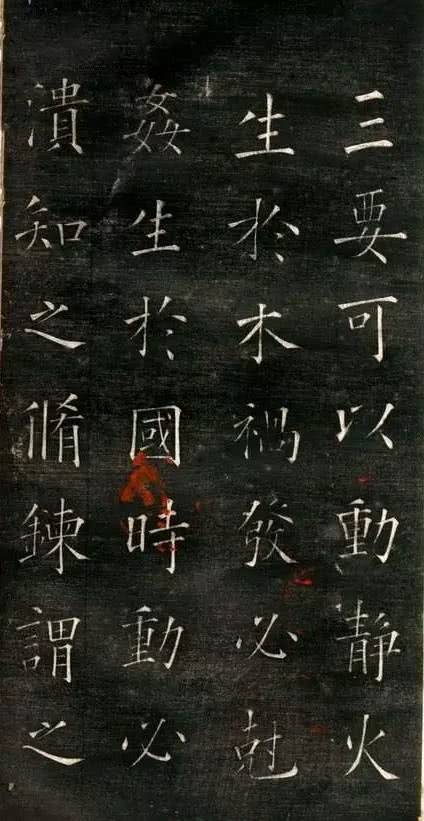 三要可以動靜火
生於木禍發必剋
姦生於國時動必
潰知之脩鍊謂之